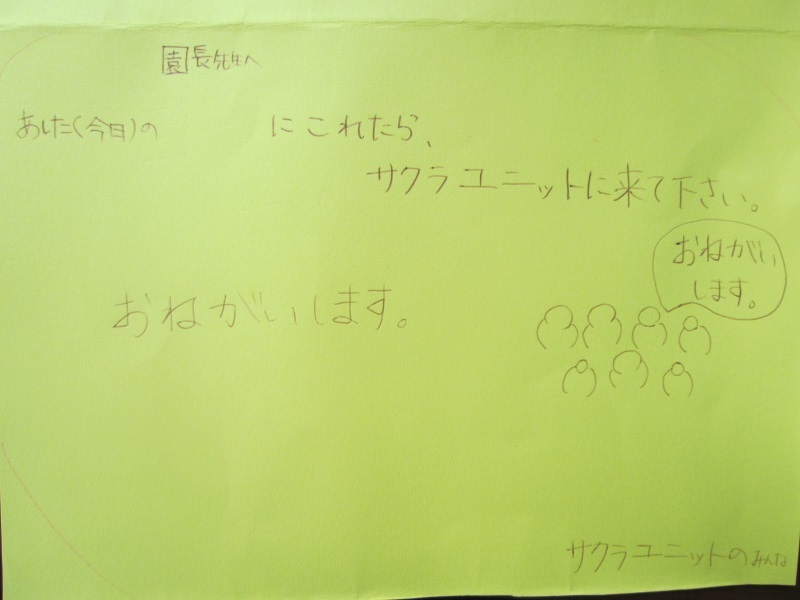 園長先生へ
あした(今日)の にこれたら、
サクラユニットに来て下さい。
おねがい
します。
おねがいします。
サクラユニットのみんな